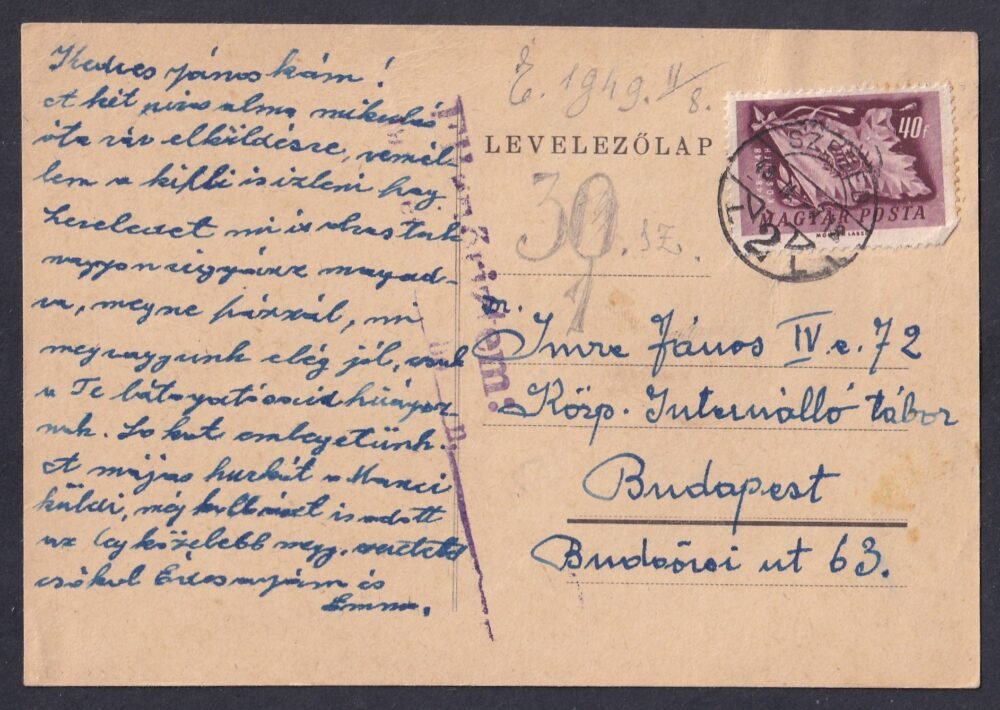 Kedves Jánoskám!
A két piros alma mikulás
óta vár elküldésre, remél-
lem a kifli is ízleni fog
Lereledet mi is olvastuk
nagyon vigyázz magad-
ra, meg ne fázzál, mi
megvagyunk elég jól, csak
a Te látogatásaid hiányoz-
nak. Sokat emlegetünk.
A májas hurkát a Marci
küldi, még kolbászt is adott
az így közelebb megy. szeretettel
csókol Édesanyám és
Emma.
É. 1949. II/8.
LEVELEZŐLAP
39. sz.
40f
MAGYAR POSTA
SZEGED
2
m.
Imre János IV. e. 72
Közp. Internálló tábor
Budapest
Budaörsi ut 63.